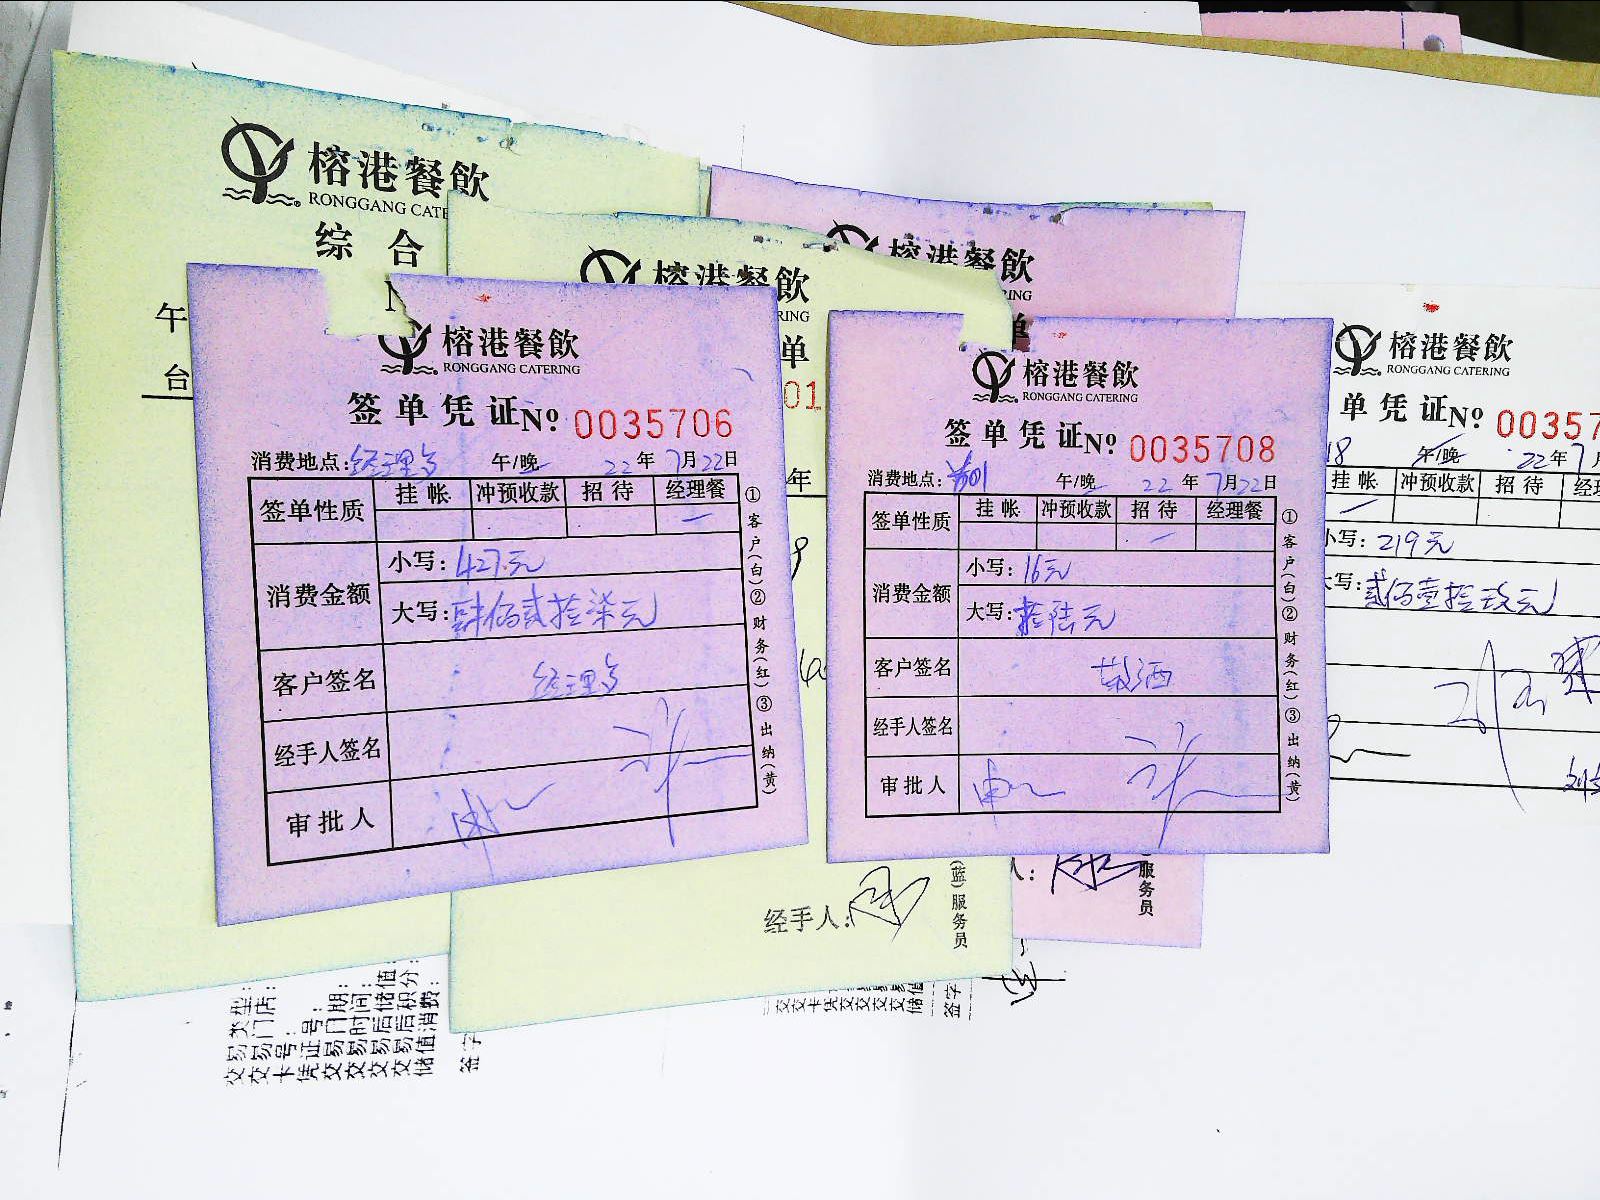 榕港餐飲
RONGGANG CATE
综 合
午
台
榕港餐飲
RING
单
01
年
经手人:
(蓝)服务员
榕港餐飲
RING
单
人:
服务员
榕港餐飲
RONGGANG CATERING
签单凭证№ 0035706
消费地点: 午/晚 22年7月22日
签单性质 挂帐 冲预收款 招待 经理餐
消费金额 小写: 427元
大写: 肆佰贰拾柒元
客户签名
经手人签名
审批人
①客户(白)②财务(红)③出纳(黄)
榕港餐飲
RONGGANG CATERING
签单凭证№ 0035708
消费地点: 午/晚 22年7月22日
签单性质 挂帐 冲预收款 招待 经理餐
消费金额 小写: 16元
大写: 拾陆元
客户签名
经手人签名
审批人
①客户(白)②财务(红)③出纳(黄)
榕港餐飲
RONGGANG CATERING
单凭证№ 00357
18 午/晚 22年7月
挂帐 冲预收款 招待 经
小写: 219元
大写: 贰佰壹拾玖元
交易类型:
交易门店:
卡号:
凭证号:
交易门期:
交易时间:
交易后储值:
交易后积分:
储值消费:
签字
签字